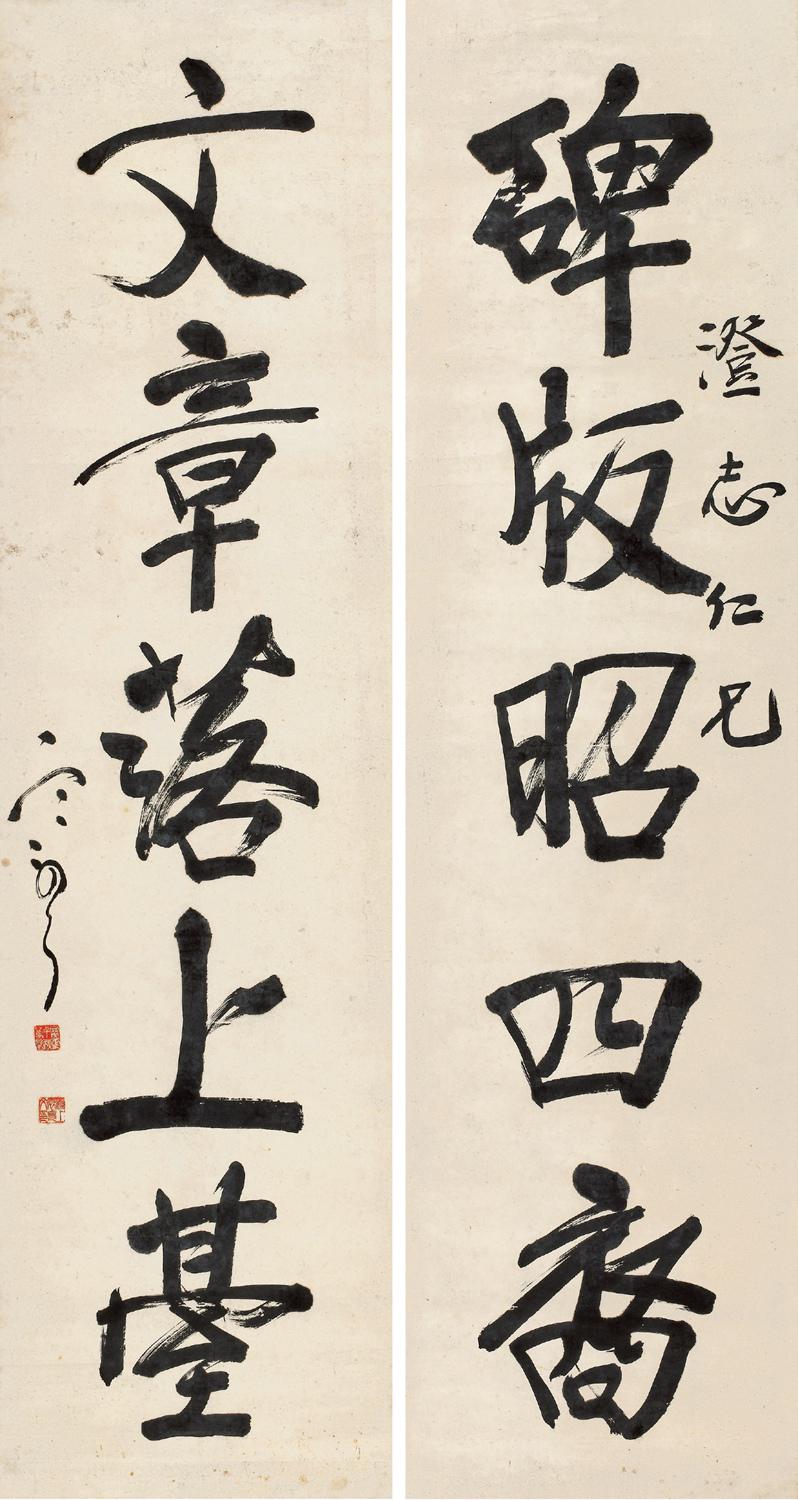 碑版昭四裔
澄志仁兄
文章落上臺